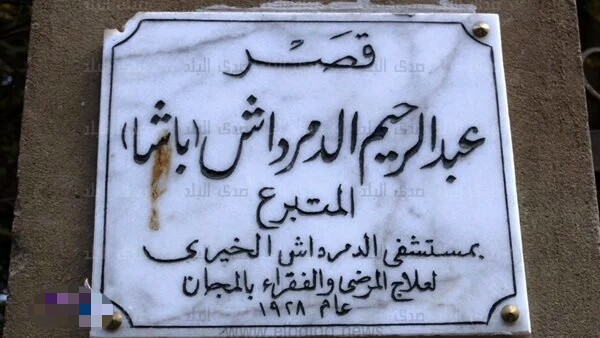 قصر
عبد الرحيم الدمرداش (باشا)
المتبرع
بمستشفى الدمرداش الخيرى
لعلاج المرضى والفقراء بالمجان
عام ١٩٢٨
صدى البلد
www.elbalad.news